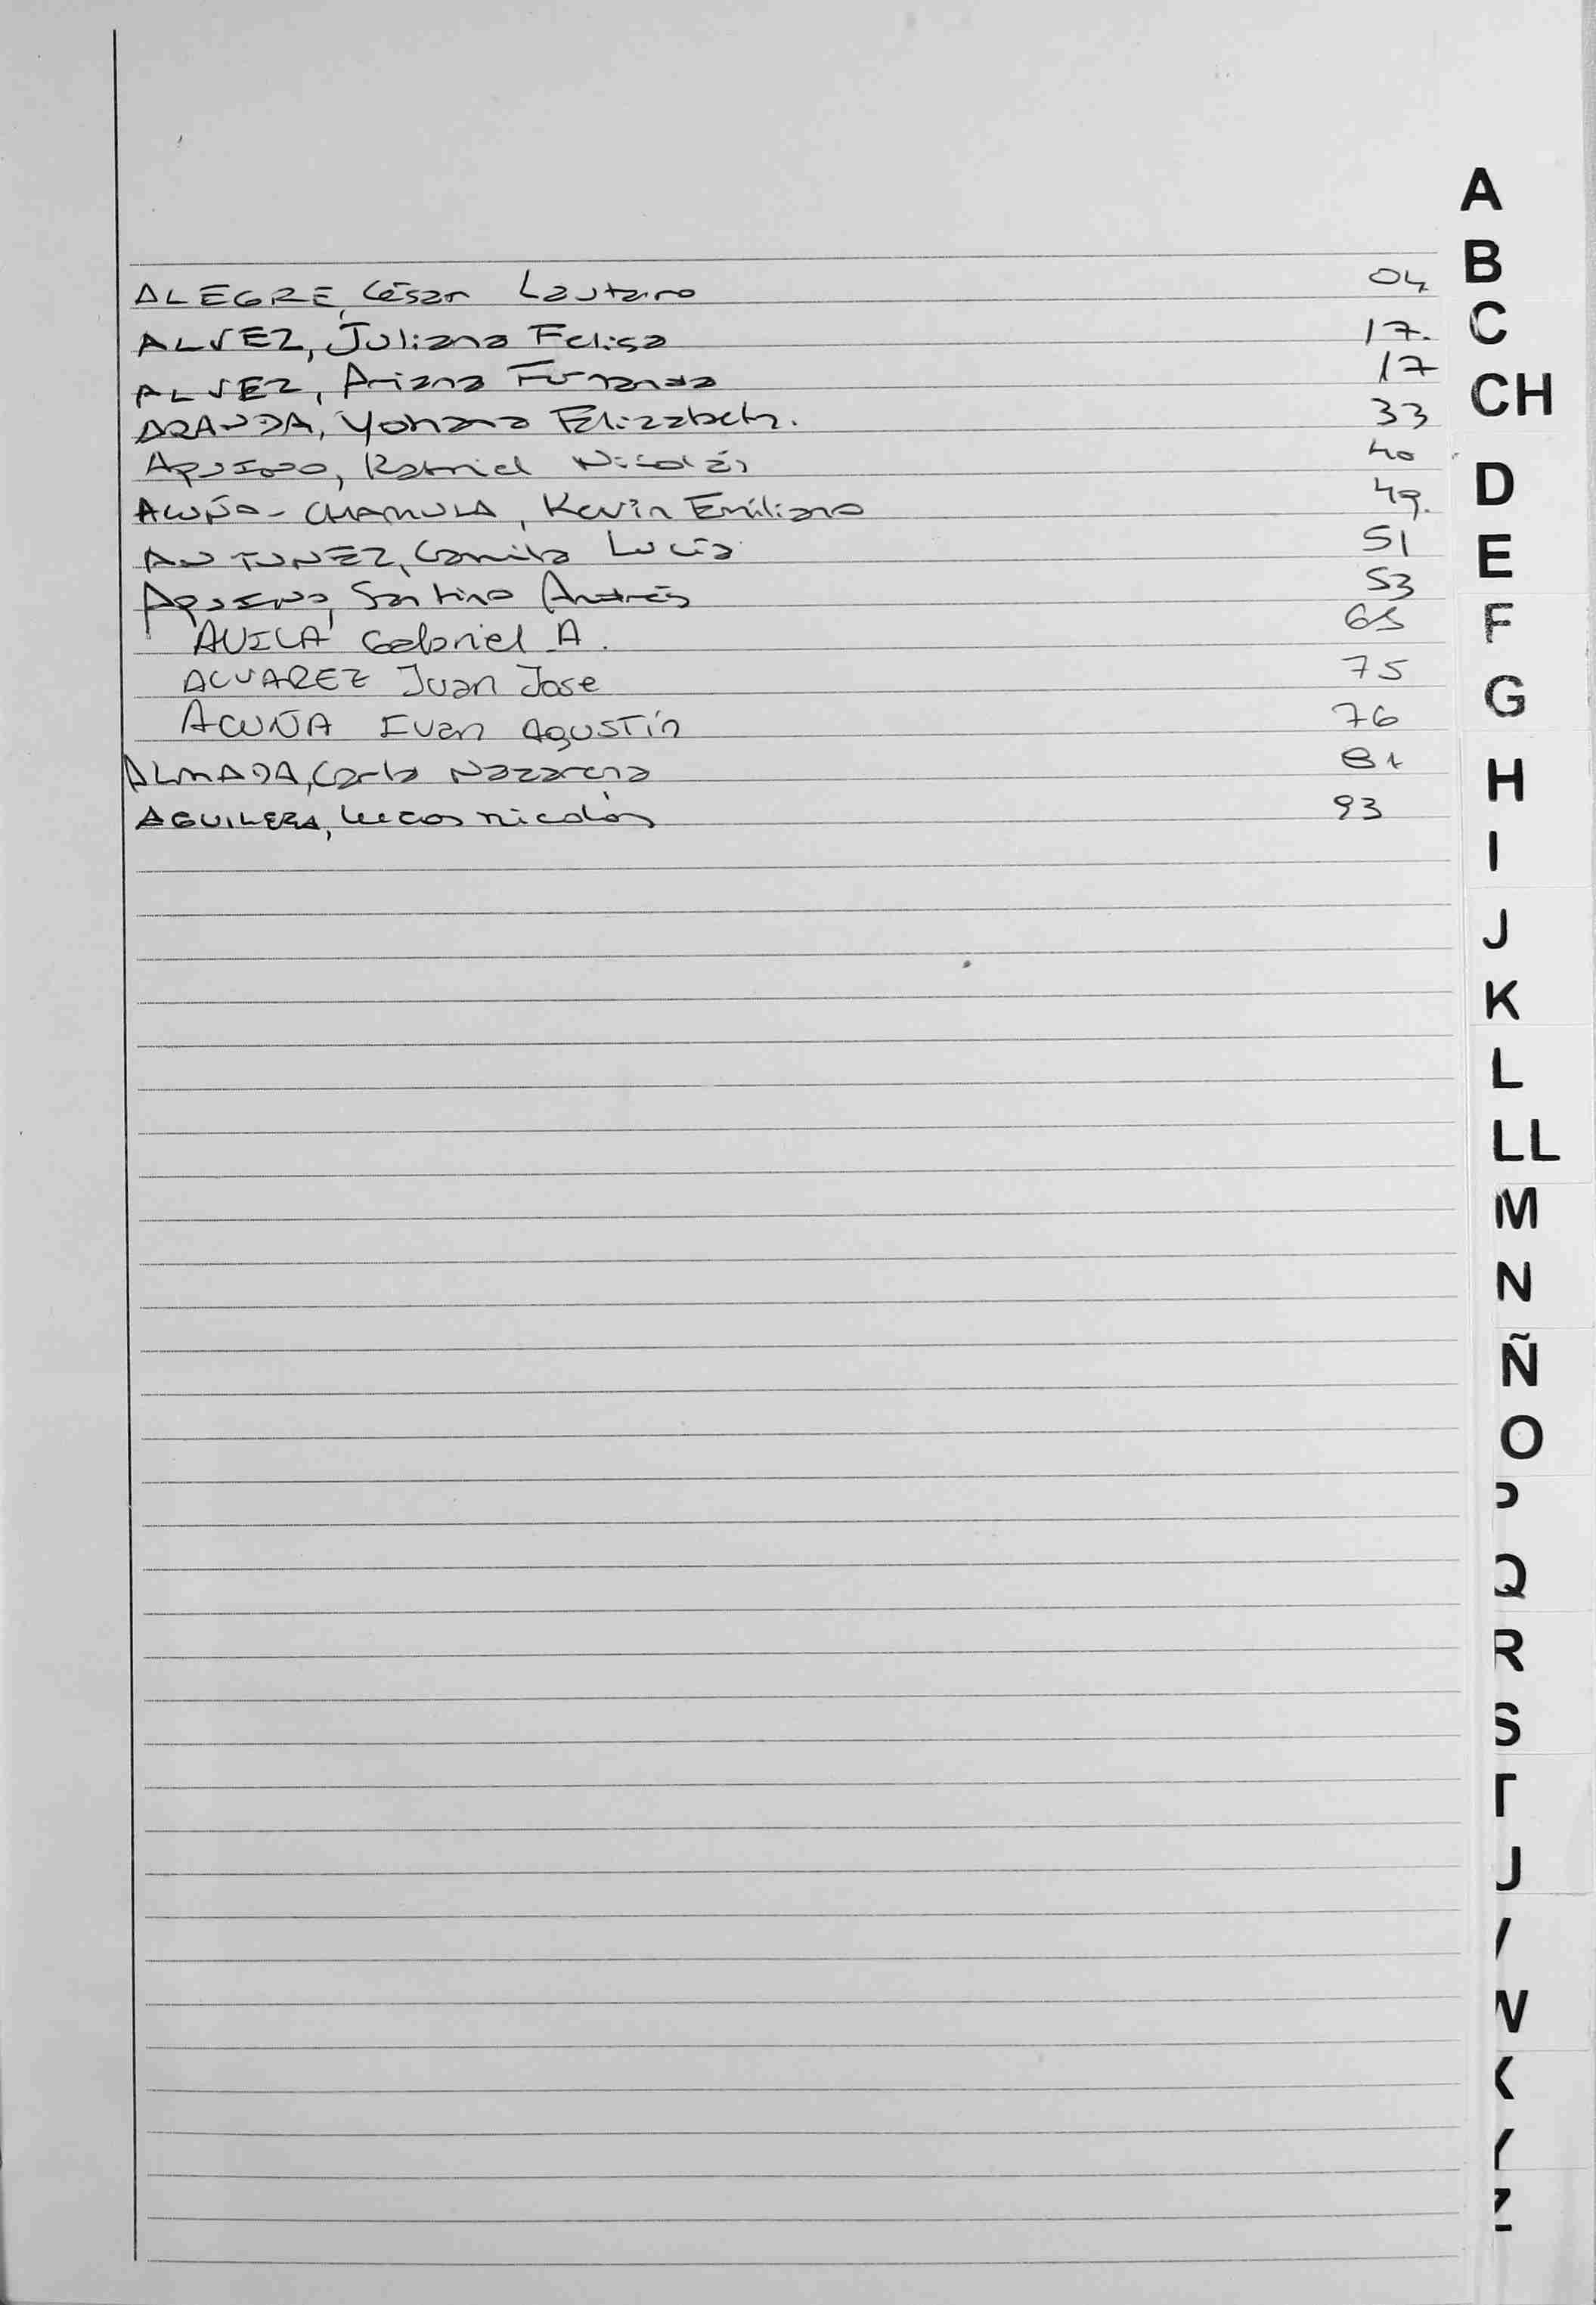 ALEGRE, César Lautaro 04
ALVEZ, Juliana Felisa 17.
ALVEZ, Ariana Fernanda 17
ARANDA, Yohana Elizabeth. 33
AQUINO, Nicolás 40
ACUÑA - CHAMULA, Kevin Emiliano 49.
ANTUNEZ, Camila Lucía 51
AQUINO, Santino Andrés 53
AVILA Gabriel A. 65
ALVAREZ Juan Jose 75
ACUÑA IVan AgUSTín 76
ALMADA, Carla Nazarena 81
AGUILERA, Lucas nicolás 93
A
B
C
CH
D
E
F
G
H
I
J
K
L
LL
M
N
Ñ
O
P
Q
R
S
T
U
V
W
X
Y
Z